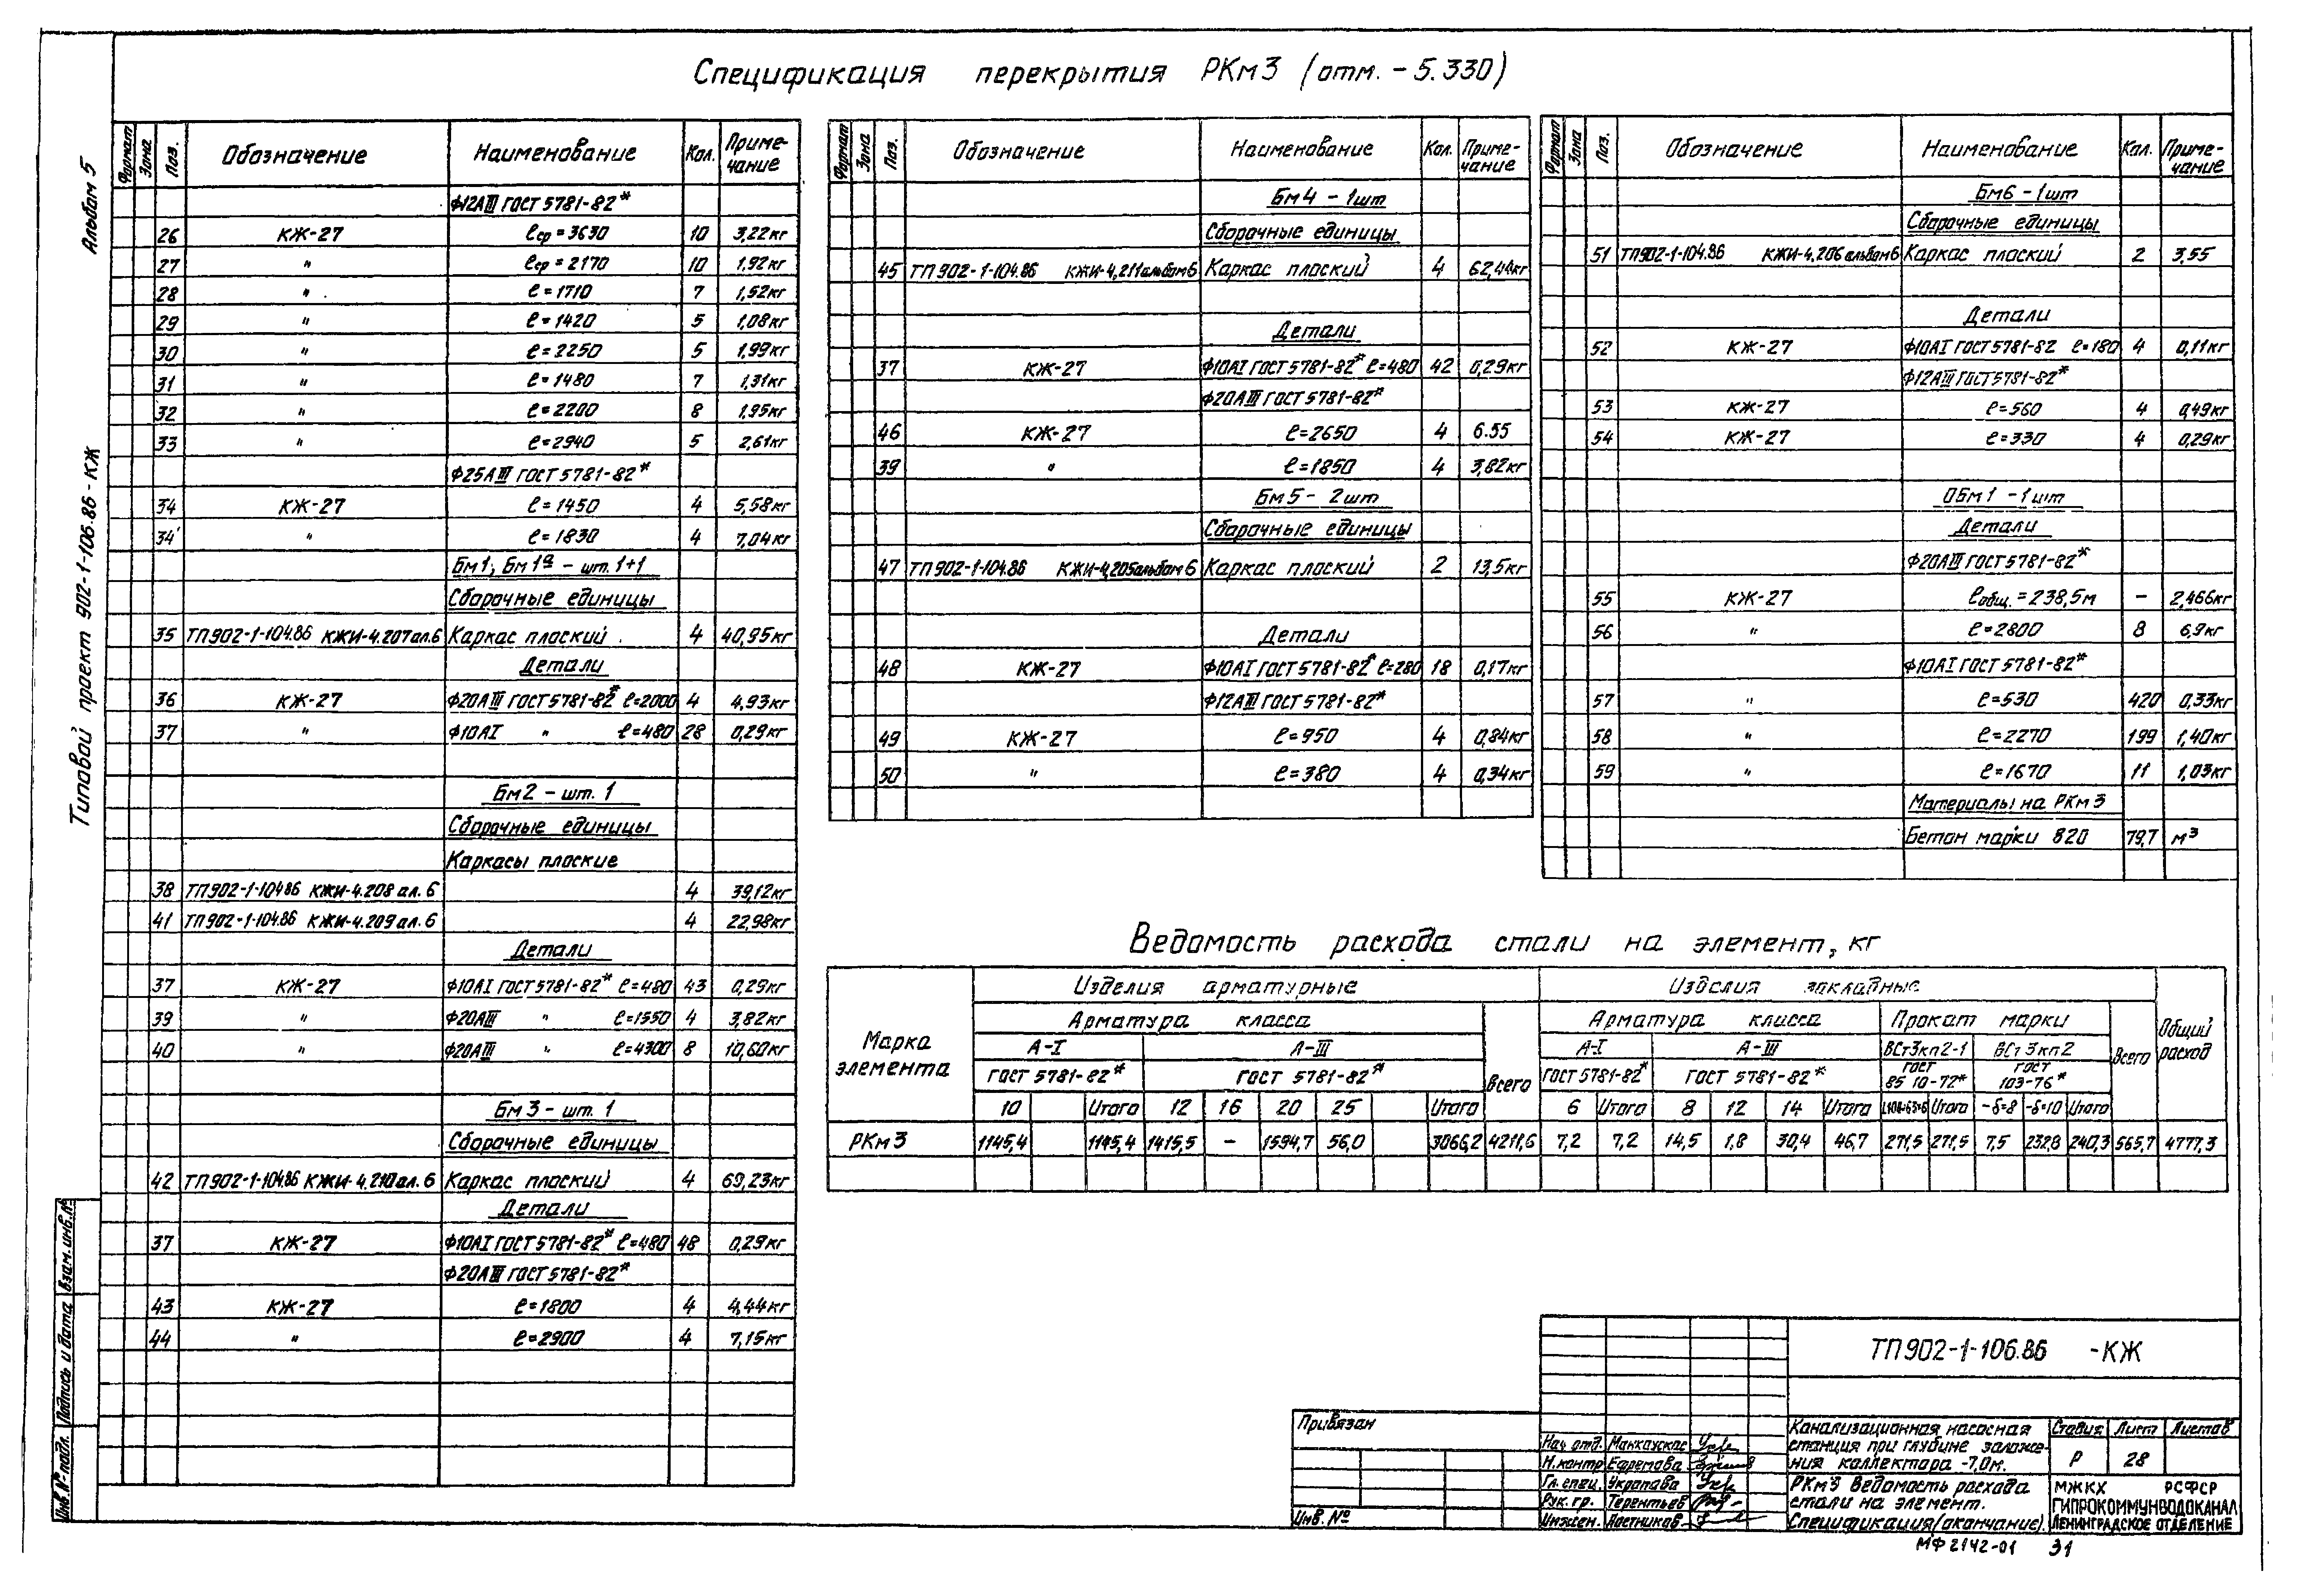 Спецификация перекрытия РКм3 (отм. -5.330)
Альбом 5
Типовой проект 902-1-106.86-КЖ
Формат Зона Поз. Обозначение Наименование Кол. Примечание
Ф12АIII ГОСТ 5781-82*
26 КЖ-27 ℓср=3630 10 3,22кг
27 " ℓср=2170 10 1,92кг
28 " ℓ=1710 7 1,52кг
29 " ℓ=1420 5 1,08кг
30 " ℓ=2250 5 1,99кг
31 " ℓ=1480 7 1,31кг
32 " ℓ=2200 8 1,95кг
33 " ℓ=2940 5 2,61кг
Ф25АIII ГОСТ 5781-82*
34 КЖ-27 ℓ=1450 4 5,58кг
34' " ℓ=1830 4 7,04кг
Бм1, Бм1а - шт. 1+1
Сборочные единицы
35 ТП902-1-104.86 КЖИ-4.207 ал.6 Каркас плоский 4 40,95кг
Детали
36 КЖ-27 Ф20АIII ГОСТ 5781-82* ℓ=2000 4 4,93кг
37 " Ф10АI " ℓ=480 28 0,29кг
Бм2 - шт. 1
Сборочные единицы
Каркасы плоские
38 ТП902-1-104.86 КЖИ-4.208 ал. 6 4 39,12кг
41 ТП902-1-104.86 КЖИ-4.209 ал. 6 4 22,98кг
Детали
37 КЖ-27 Ф10АI ГОСТ 5781-82* ℓ=480 43 0,29кг
39 " Ф20АIII " ℓ=1550 4 3,82кг
40 " Ф20АIII " ℓ=4300 8 10,60кг
Бм3 - шт. 1
Сборочные единицы
42 ТП902-1-104.86 КЖИ-4.210 ал. 6 Каркас плоский 4 69,23кг
Детали
37 КЖ-27 Ф10АI ГОСТ 5781-82* ℓ=480 48 0,29кг
Ф20АIII ГОСТ 5781-82*
43 КЖ-27 ℓ=1800 4 4,44кг
44 " ℓ=2900 4 7,15кг
Формат Зона Поз. Обозначение Наименование Кол. Примечание
Бм4 - 1шт
Сборочные единицы
45 ТП902-1-104.86 КЖИ-4,211альбом6 Каркас плоский 4 62,44кг
Детали
37 КЖ-27 Ф10АI ГОСТ 5781-82* ℓ=480 42 0,29кг
Ф20АIII ГОСТ 5781-82*
46 КЖ-27 ℓ=2650 4 6.55
39 " ℓ=1850 4 3,82кг
Бм5 - 2шт
Сборочные единицы
47 ТП902-1-104.86 КЖИ-4,205альбом6 Каркас плоский 2 13,5кг
Детали
48 КЖ-27 Ф10АI ГОСТ 5781-82* ℓ=280 18 0,17кг
Ф12АIII ГОСТ 5781-82*
49 КЖ-27 ℓ=950 4 0,84кг
50 " ℓ=380 4 0,34кг
Формат Зона Поз. Обозначение Наименование Кол. Примечание
Бм6 - 1шт
Сборочные единицы
51 ТП902-1-104.86 КЖИ-4,206 альбом6 Каркас плоский 2 3,55
Детали
52 КЖ-27 Ф10АI ГОСТ 5781-82 ℓ=180 4 0,11кг
Ф12АIII ГОСТ 5781-82*
53 КЖ-27 ℓ=560 4 0,49кг
54 КЖ-27 ℓ=330 4 0,29кг
ОБм1 - 1шт
Детали
Ф20АIII ГОСТ 5781-82*
55 КЖ-27 ℓобщ.=238,5м - 2,466кг
56 " ℓ=2800 8 6,9кг
Ф10АI ГОСТ 5781-82*
57 " ℓ=530 420 0,33кг
58 " ℓ=2270 199 1,40кг
59 " ℓ=1670 11 1,03кг
Материалы на РКм3
Бетон марки 820 79,7 м³
Ведомость расхода стали на элемент, кг
Марка элемента Изделия арматурные Изделия закладные Общий расход
Арматура класса Всего Арматура класса Прокат марки Всего
А-I А-III А-I А-III ВСт3кп2-1 ВСт3кп2
ГОСТ 5781-82* ГОСТ 5781-82* ГОСТ 5781-82* ГОСТ 5781-82* ГОСТ 8510-72* ГОСТ 103-76*
10 Итого 12 16 20 25 Итого 6 Итого 8 12 14 Итого Итого -δ=8 -δ=10 Итого
РКм3 1145,4 1145,4 1415,5 - 1594,7 56,0 3066,2 4211,6 7,2 7,2 14,5 1,8 30,4 46,7 271,5 271,5 7,5 232,8 240,3 565,7 4777,3
Взам. инв. №
Подпись и дата
Инв. № подл.
Привязан
Инв. №
ТП902-1-106.86 -КЖ
Нач отд. Манкаускас
Н.контр Ефремова
Гл. спец. Укропова
Рук. гр. Терентьев
Инжен. Постников
Канализационная насосная станция при глубине заложения коллектора -7,0м.
Стадия Лист Листов
Р 28
РКм3 Ведомость расхода стали на элемент. Спецификация (окончание).
МЖКХ РСФСР
ГИПРОКОММУНВОДОКАНАЛ
ЛЕНИНГРАДСКОЕ ОТДЕЛЕНИЕ
МФ 2142-01 31